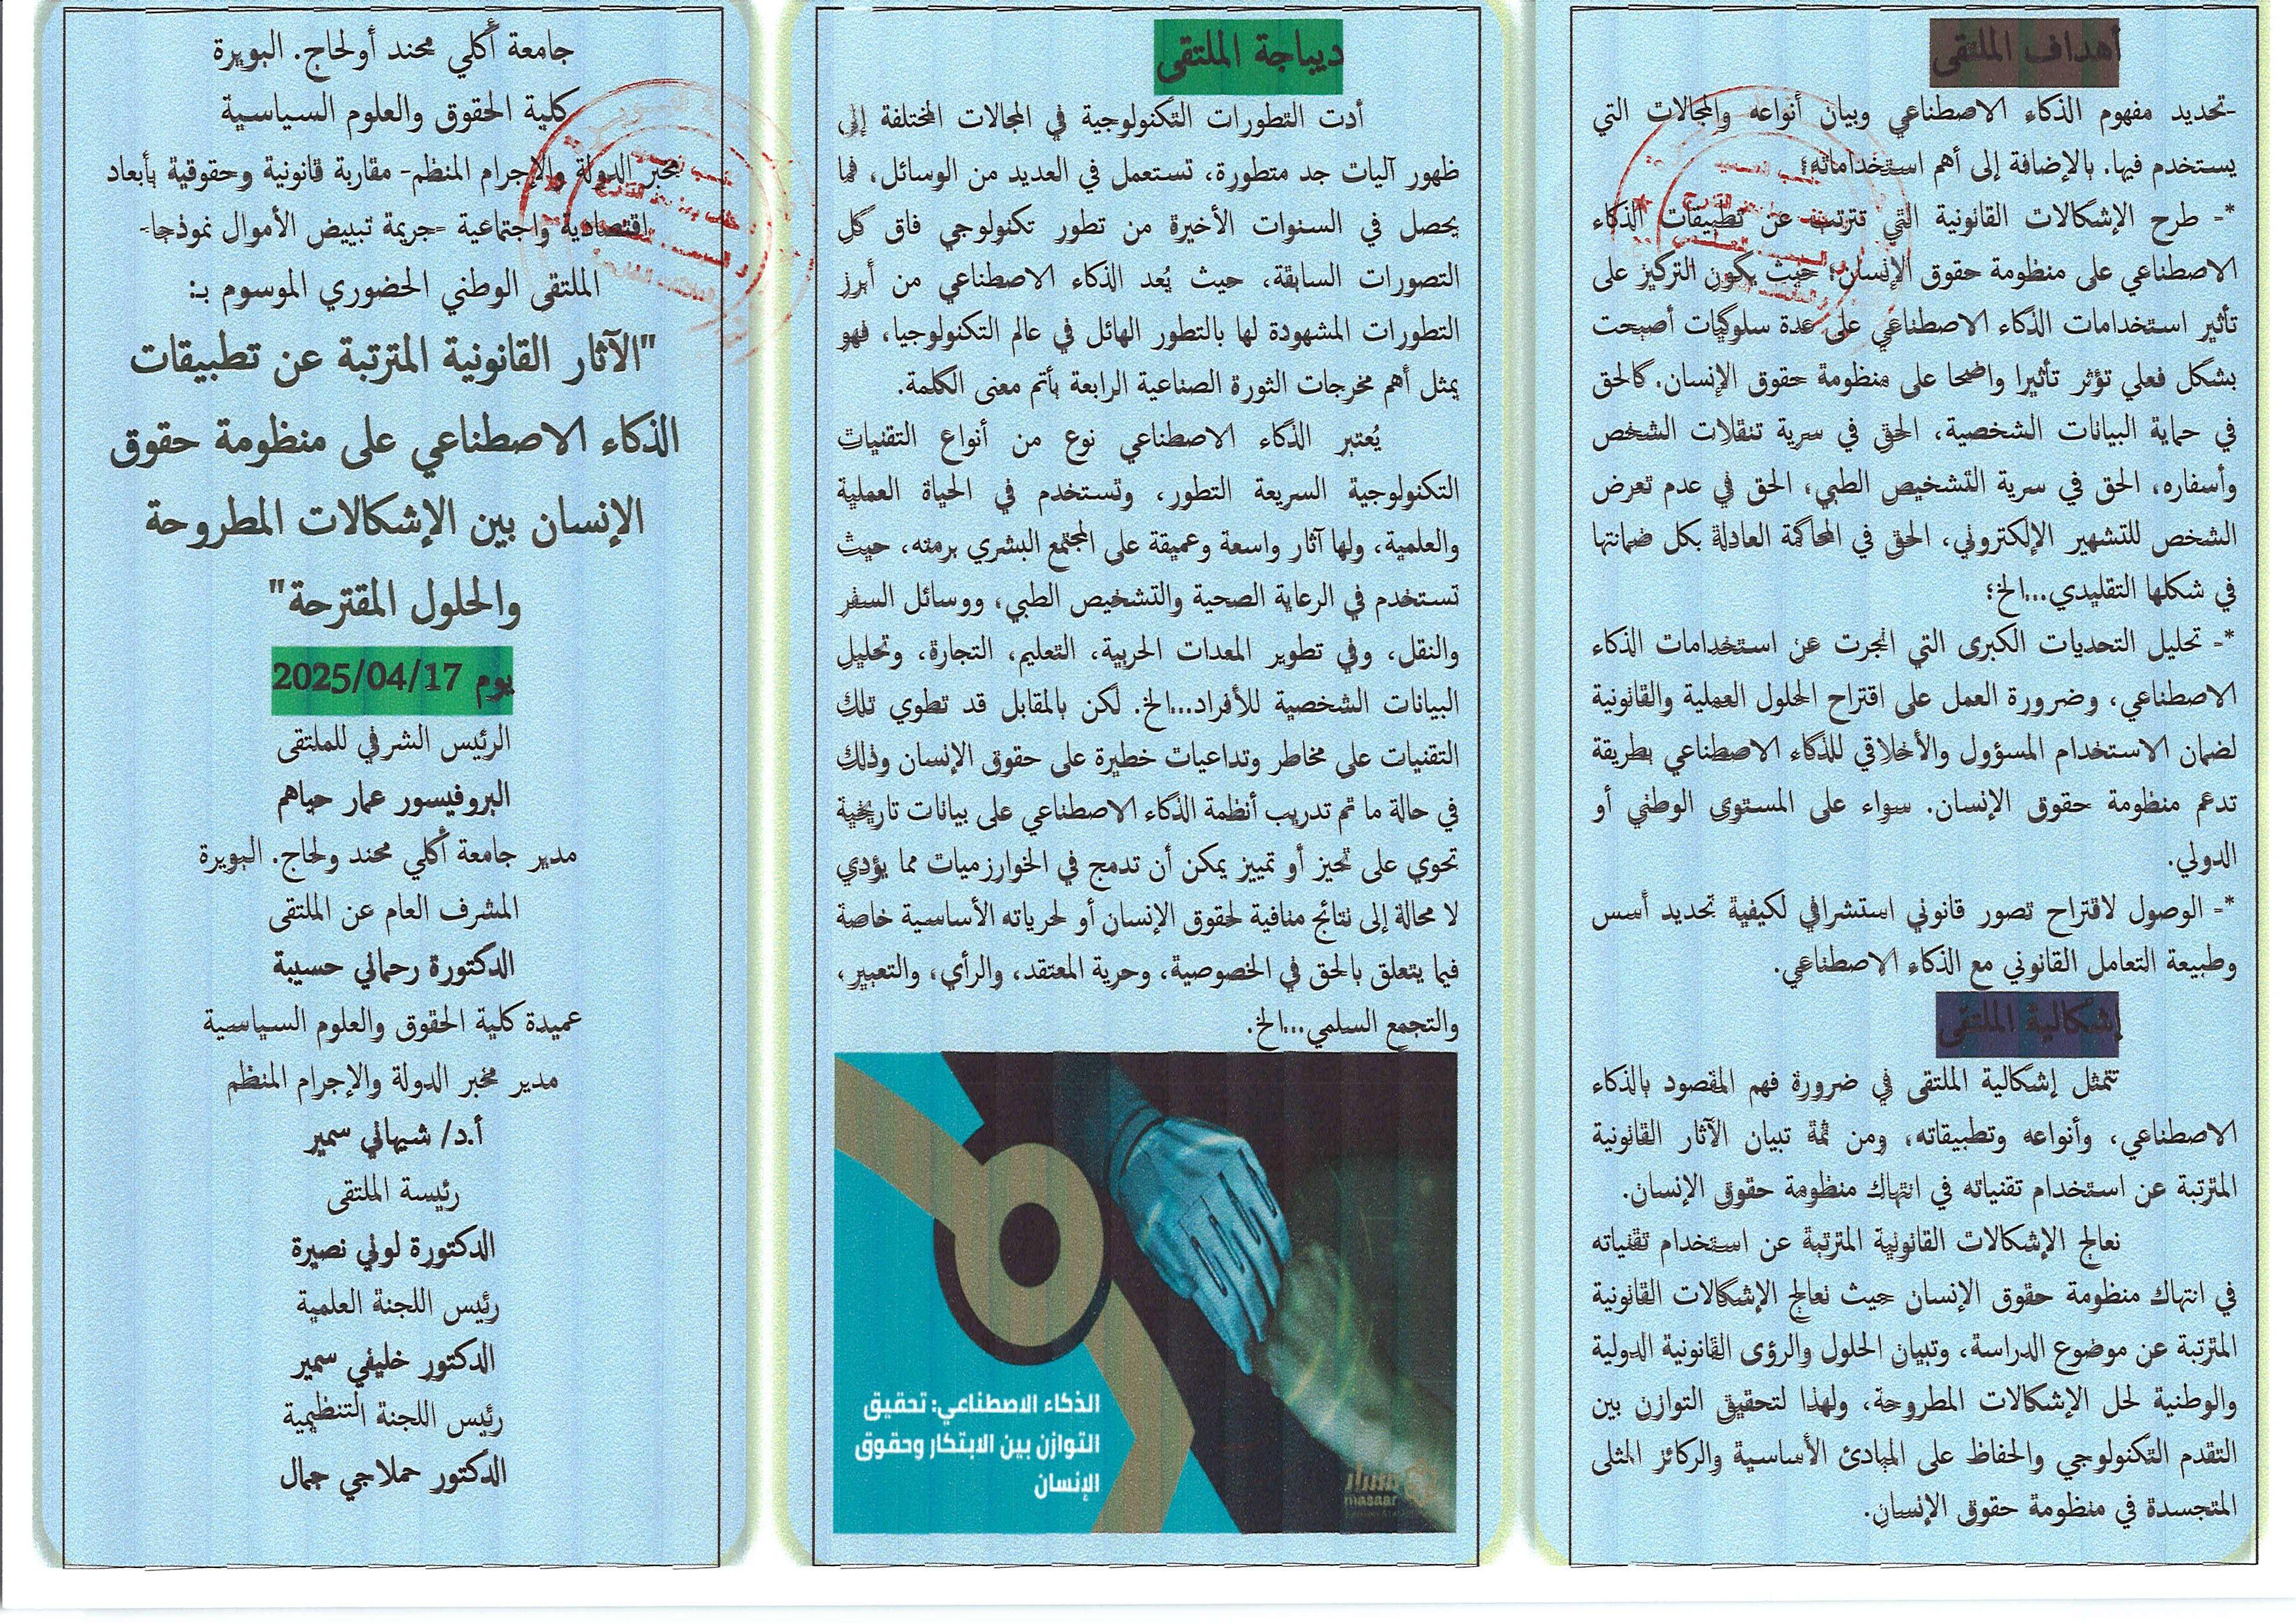 أهداف الملتقى
-تحديد مفهوم الذكاء الاصطناعي وبيان أنواعه والمجالات التي
يستخدم فيها. بالإضافة إلى أهم استخداماته؛
*- طرح الإشكالات القانونية التي تترتب عن تطبيقات الذكاء
الاصطناعي على منظومة حقوق الإنسان؛ حيث يكون التركيز على
تأثير استخدامات الذكاء الاصطناعي على عدة سلوكيات أصبحت
بشكل فعلي تؤثر تأثيرا واضحا على منظومة حقوق الإنسان. كالحق
في حماية البيانات الشخصية، الحق في سرية تنقلات الشخص
وأسفاره، الحق في سرية التشخيص الطبي، الحق في عدم تعرض
الشخص للتشهير الإلكتروني، الحق في المحاكمة العادلة بكل ضمانتها
في شكلها التقليدي...الخ؛
*- تحليل التحديات الكبرى التي انجرت عن استخدامات الذكاء
الاصطناعي، وضرورة العمل على اقتراح الحلول العملية والقانونية
لضمان الاستخدام المسؤول والأخلاقي للذكاء الاصطناعي بطريقة
تدعم منظومة حقوق الإنسان. سواء على المستوى الوطني أو
الدولي.
*- الوصول لاقتراح تصور قانوني استشرافي لكيفية تحديد أسس
وطبيعة التعامل القانوني مع الذكاء الاصطناعي.
إشكالية الملتقى
تتمثل إشكالية الملتقى في ضرورة فهم المقصود بالذكاء
الاصطناعي، وأنواعه وتطبيقاته، ومن ثمة تبيان الآثار القانونية
المترتبة عن استخدام تقنياته في انتهاك منظومة حقوق الإنسان.
نعالج الإشكالات القانونية المترتبة عن استخدام تقنياته
في انتهاك منظومة حقوق الإنسان حيث نعالج الإشكالات القانونية
المترتبة عن موضوع الدراسة، وتبيان الحلول والرؤى القانونية الدولية
والوطنية لحل الإشكالات المطروحة، ولهذا لتحقيق التوازن بين
التقدم التكنولوجي والحفاظ على المبادئ الأساسية والركائز المثلى
المتجسدة في منظومة حقوق الإنسان.
ديباجة الملتقى
أدت التطورات التكنولوجية في المجالات المختلفة إلى
ظهور آليات جد متطورة، تستعمل في العديد من الوسائل، فما
يحصل في السنوات الأخيرة من تطور تكنولوجي فاق كل
التصورات السابقة، حيث يُعد الذكاء الاصطناعي من أبرز
التطورات المشهودة لها بالتطور الهائل في عالم التكنولوجيا، فهو
يمثل أهم مخرجات الثورة الصناعية الرابعة بأتم معنى الكلمة.
يُعتبر الذكاء الاصطناعي نوع من أنواع التقنيات
التكنولوجية السريعة التطور، وتستخدم في الحياة العملية
والعلمية، ولها آثار واسعة وعميقة على المجتمع البشري برمته، حيث
تستخدم في الرعاية الصحية والتشخيص الطبي، ووسائل السفر
والنقل، وفي تطوير المعدات الحربية، التعليم، التجارة، وتحليل
البيانات الشخصية للأفراد...الخ. لكن بالمقابل قد تطوي تلك
التقنيات على مخاطر وتداعيات خطيرة على حقوق الإنسان وذلك
في حالة ما تم تدريب أنظمة الذكاء الاصطناعي على بيانات تاريخية
تحوي على تحيز أو تمييز يمكن أن تدمج في الخوارزميات مما يؤدي
لا محالة إلى نتائج منافية لحقوق الإنسان أو لحرياته الأساسية خاصة
فيما يتعلق بالحق في الخصوصية، وحرية المعتقد، والرأي، والتعبير،
والتجمع السلمي...الخ.
الذكاء الاصطناعي: تحقيق
التوازن بين الابتكار وحقوق
الإنسان
مسار
masaar
جامعة أكلي محند أولحاج. البويرة
كلية الحقوق والعلوم السياسية
مخبر الدولة والإجرام المنظم- مقاربة قانونية وحقوقية بأبعاد
اقتصادية واجتماعية -جريمة تبييض الأموال نموذجا-
الملتقى الوطني الحضوري الموسوم بـ:
"الآثار القانونية المترتبة عن تطبيقات
الذكاء الاصطناعي على منظومة حقوق
الإنسان بين الإشكالات المطروحة
والحلول المقترحة"
يوم 2025/04/17
الرئيس الشرفي للملتقى
البروفيسور عمار حياهم
مدير جامعة أكلي محند ولحاج. البويرة
المشرف العام عن الملتقى
الدكتورة رحماني حسيبة
عميدة كلية الحقوق والعلوم السياسية
مدير مخبر الدولة والإجرام المنظم
أ.د/ شيهاني سمير
رئيسة الملتقى
الدكتورة لوني نصيرة
رئيس اللجنة العلمية
الدكتور خليفي سمير
رئيس اللجنة التنظيمية
الدكتور حملاجي جمال